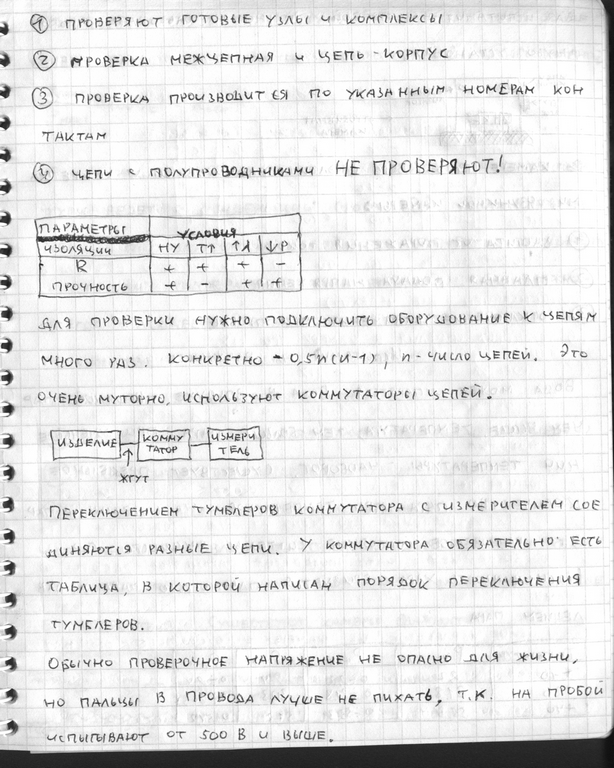 ① ПРОВЕРЯЮТ ГОТОВЫЕ УЗЛЫ И КОМПЛЕКСЫ
② ПРОВЕРКА МЕЖЦЕПНАЯ И ЦЕПЬ-КОРПУС
③ ПРОВЕРКА ПРОИЗВОДИТСЯ ПО УКАЗАННЫМ НОМЕРАМ КОН
ТАКТАМ
④ ЦЕПИ С ПОЛУПРОВОДНИКАМИ НЕ ПРОВЕРЯЮТ!
ПАРАМЕТРЫ УСЛОВИЯ
ИЗОЛЯЦИИ НУ Т↑ ↑λ ↓Р
R + + + -
ПРОЧНОСТЬ + - + +
ДЛЯ ПРОВЕРКИ НУЖНО ПОДКЛЮЧИТЬ ОБОРУДОВАНИЕ К ЦЕПЯМ
МНОГО РАЗ. КОНКРЕТНО - 0,5n(n-1), n-ЧИСЛО ЦЕПЕЙ. ЭТО
ОЧЕНЬ МУТОРНО, ИСПОЛЬЗУЮТ КОММУТАТОРЫ ЦЕПЕЙ.
ИЗДЕЛИЕ КОММУ ИЗМЕРИ
ТАТОР ТЕЛЬ
ЖГУТ
ПЕРЕКЛЮЧЕНИЕМ ТУМБЛЕРОВ КОММУТАТОРА С ИЗМЕРИТЕЛЕМ СОЕ
ДИНЯЮТСЯ РАЗНЫЕ ЦЕПИ. У КОММУТАТОРА ОБЯЗАТЕЛЬНО ЕСТЬ
ТАБЛИЦА, В КОТОРОЙ НАПИСАН ПОРЯДОК ПЕРЕКЛЮЧЕНИЯ
ТУМБЛЕРОВ.
ОБЫЧНО ПРОВЕРОЧНОЕ НАПРЯЖЕНИЕ НЕ ОПАСНО ДЛЯ ЖИЗНИ,
НО ПАЛЬЦЫ В ПРОВОДА ЛУЧШЕ НЕ ПИХАТЬ, Т.К. НА ПРОБОЙ
ИСПЫТЫВАЮТ ОТ 500 В И ВЫШЕ.